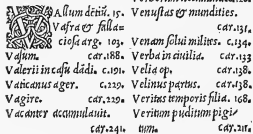 VAllum dētiū. 15.
Vafra & falla=
ciosa arg. 103.
Vasum. car.188.
Valerii in casu dādi. c.191.
Vaticanus ager. c.229.
Vagire. car.229.
Vacanter accumulauit.
car.241.
Venustas & mundities.
car.131.
Venam solui milites. c.134.
Verba in ciuilia. car.133
Velia op. car.138.
Velinus partus. car.138.
Veritas temporis filia. 168.
Veritum puditum pigi=
tum. car.217.